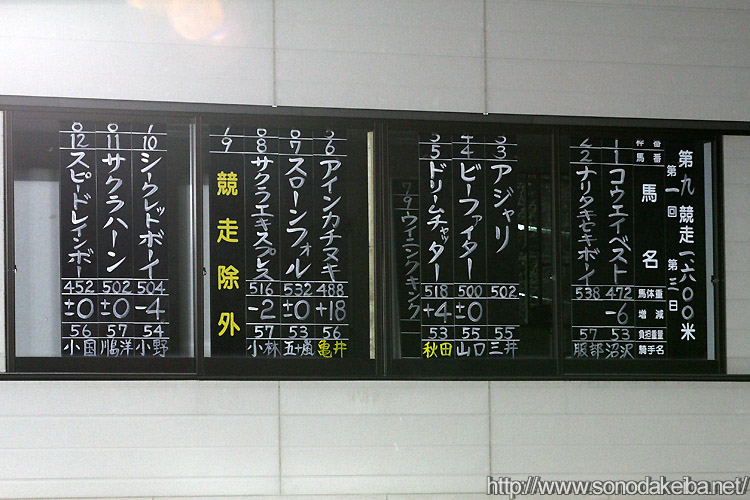 第九競走 一六〇〇米
第一回 第三日
枠番
馬番
馬名
馬体重
増減
負担重量
騎手名
1 コウエイベスト 472 -6 53 沼沢
2 ナリタキセキボーイ 538 57 服部
3 アジャリ 502 55 三井
4 ビーファイター 500 ±0 55 山口
5 ドリームチャッター 518 +4 53 秋田
79 ウイニングキング
6 アインカチヌキ 488 +18 56 亀井
7 スローンフォル 532 ±0 53 五十嵐
8 サクラエキスプレス 516 -2 57 小林
9 競走除外
10 シークレットボーイ 504 -4 54 小野
11 サクラハーン 502 ±0 57 川島洋
12 スピードレインボー 452 ±0 56 小国
http://www.sonodakeiba.net/